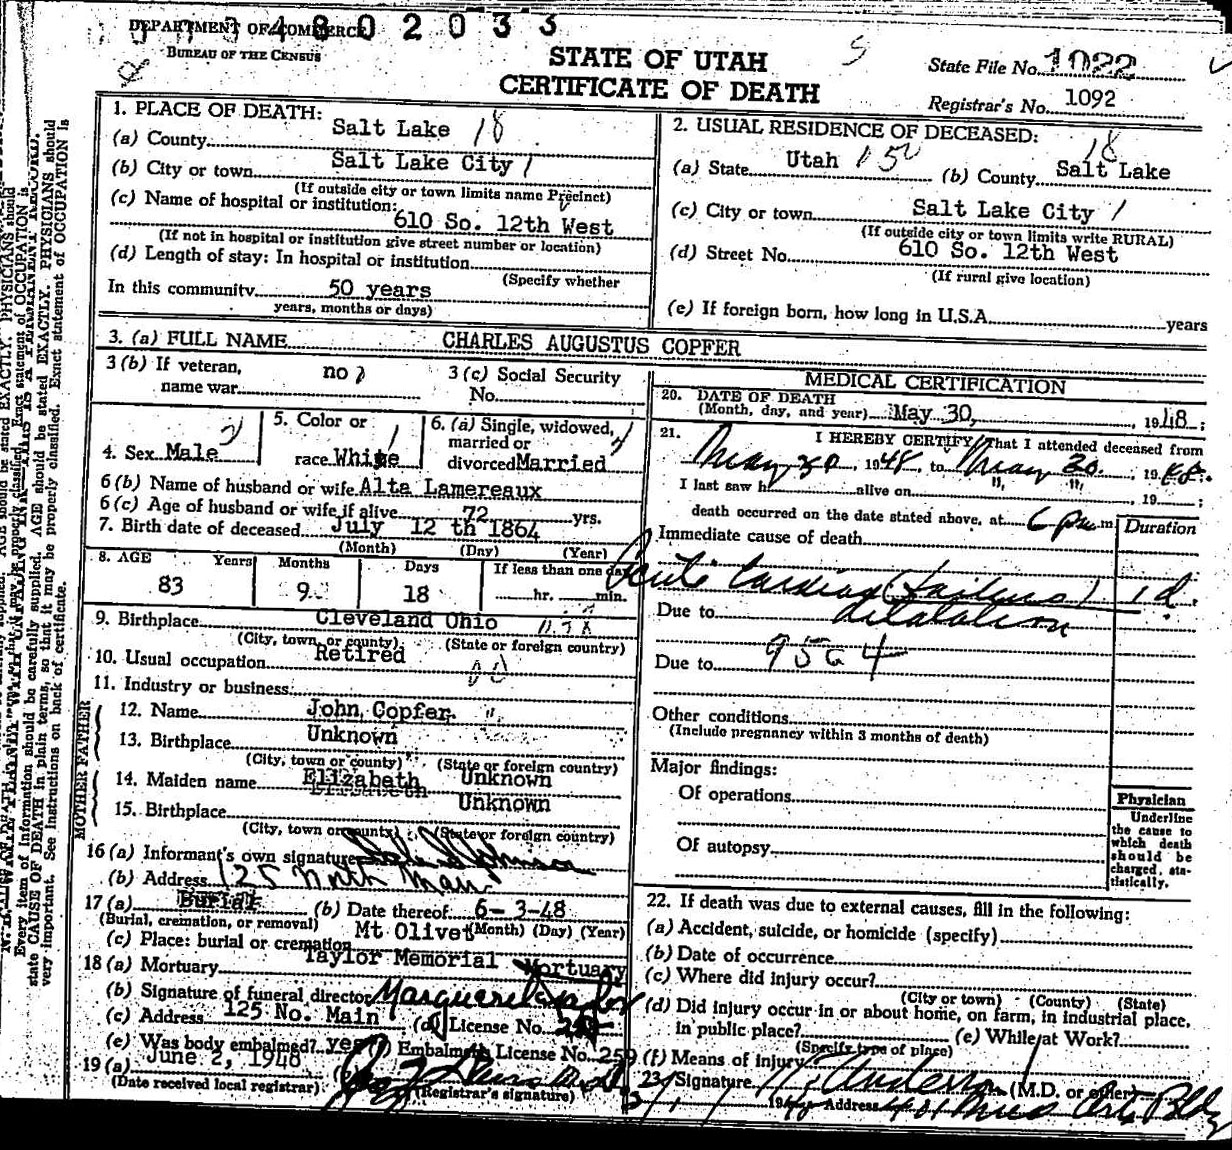 DEPARTMENT OF COMMERCE
4802033
BUREAU OF THE CENSUS
STATE OF UTAH
CERTIFICATE OF DEATH
State File No. 1022
Registrar's No. 1092
1. PLACE OF DEATH:
(a) County Salt Lake 18
(b) City or town Salt Lake City 1
(If outside city or town limits name Precinct)
(c) Name of hospital or institution:
610 So. 12th West
(If not in hospital or institution give street number or location)
(d) Length of stay: In hospital or institution
(Specify whether
In this community 50 years
years, months or days)
2. USUAL RESIDENCE OF DECEASED:
18
(a) State Utah 150 (b) County Salt Lake
(c) City or town Salt Lake City 1
(If outside city or town limits write RURAL)
(d) Street No. 610 So. 12th West
(If rural give location)
(e) If foreign born, how long in U.S.A. years
3. (a) FULL NAME CHARLES AUGUSTUS COPFER
3 (b) If veteran, name war no
3 (c) Social Security No.
4. Sex Male
5. Color or race White
6. (a) Single, widowed, married or divorced Married
6 (b) Name of husband or wife Alta Lamereaux
6 (c) Age of husband or wife if alive 72 yrs.
7. Birth date of deceased July 12 th 1864
(Month) (Day) (Year)
8. AGE Years Months Days If less than one day
83 9 18 hr. min.
9. Birthplace Cleveland Ohio
(City, town, or county) (State or foreign country)
10. Usual occupation Retired
11. Industry or business
FATHER
12. Name John Copfer
13. Birthplace Unknown
(City, town or county) (State or foreign country)
MOTHER
14. Maiden name Elizabeth Unknown
15. Birthplace Unknown
(City, town or county) (State or foreign country)
16 (a) Informant's own signature Johnson
(b) Address 125 North Main
17 (a) Burial (b) Date thereof 6-3-48
(Burial, cremation, or removal) (Month) (Day) (Year)
(c) Place: burial or cremation Mt Olivet
18 (a) Mortuary Taylor Memorial Mortuary
(b) Signature of funeral director
(c) Address 125 No. Main (d) License No.
(e) Was body embalmed? yes (f) Embalmer's License No. 259
19 (a) June 2, 1948
(Date received local registrar) (Registrar's signature)
MEDICAL CERTIFICATION
20. DATE OF DEATH
(Month, day, and year) May 30, 1948;
21. I HEREBY CERTIFY, That I attended deceased from
May 30, 1948, to May 30, 1948.
I last saw h alive on 19
death occurred on the date stated above, at 6 pm m
Duration
Immediate cause of death
Acute Cardiac (Failure) 1 d.
Due to dilatation
Due to
Other conditions
(Include pregnancy within 3 months of death)
Major findings:
Of operations
Of autopsy
Physician
Underline the cause to which death should be charged statistically.
22. If death was due to external causes, fill in the following:
(a) Accident, suicide, or homicide (specify)
(b) Date of occurrence
(c) Where did injury occur?
(City or town) (County) (State)
(d) Did injury occur in or about home, on farm, in industrial place,
in public place? (e) While at Work?
(Specify type of place)
(f) Means of Injury
23. Signature Anderson (M.D. or other)
1948 Address Arts Bldg
Every item of information should be carefully supplied. AGE should be stated EXACTLY. PHYSICIANS should
state CAUSE OF DEATH in plain terms, so that it may be properly classified. Exact statement of OCCUPATION is
very important. See instructions on back of certificate.